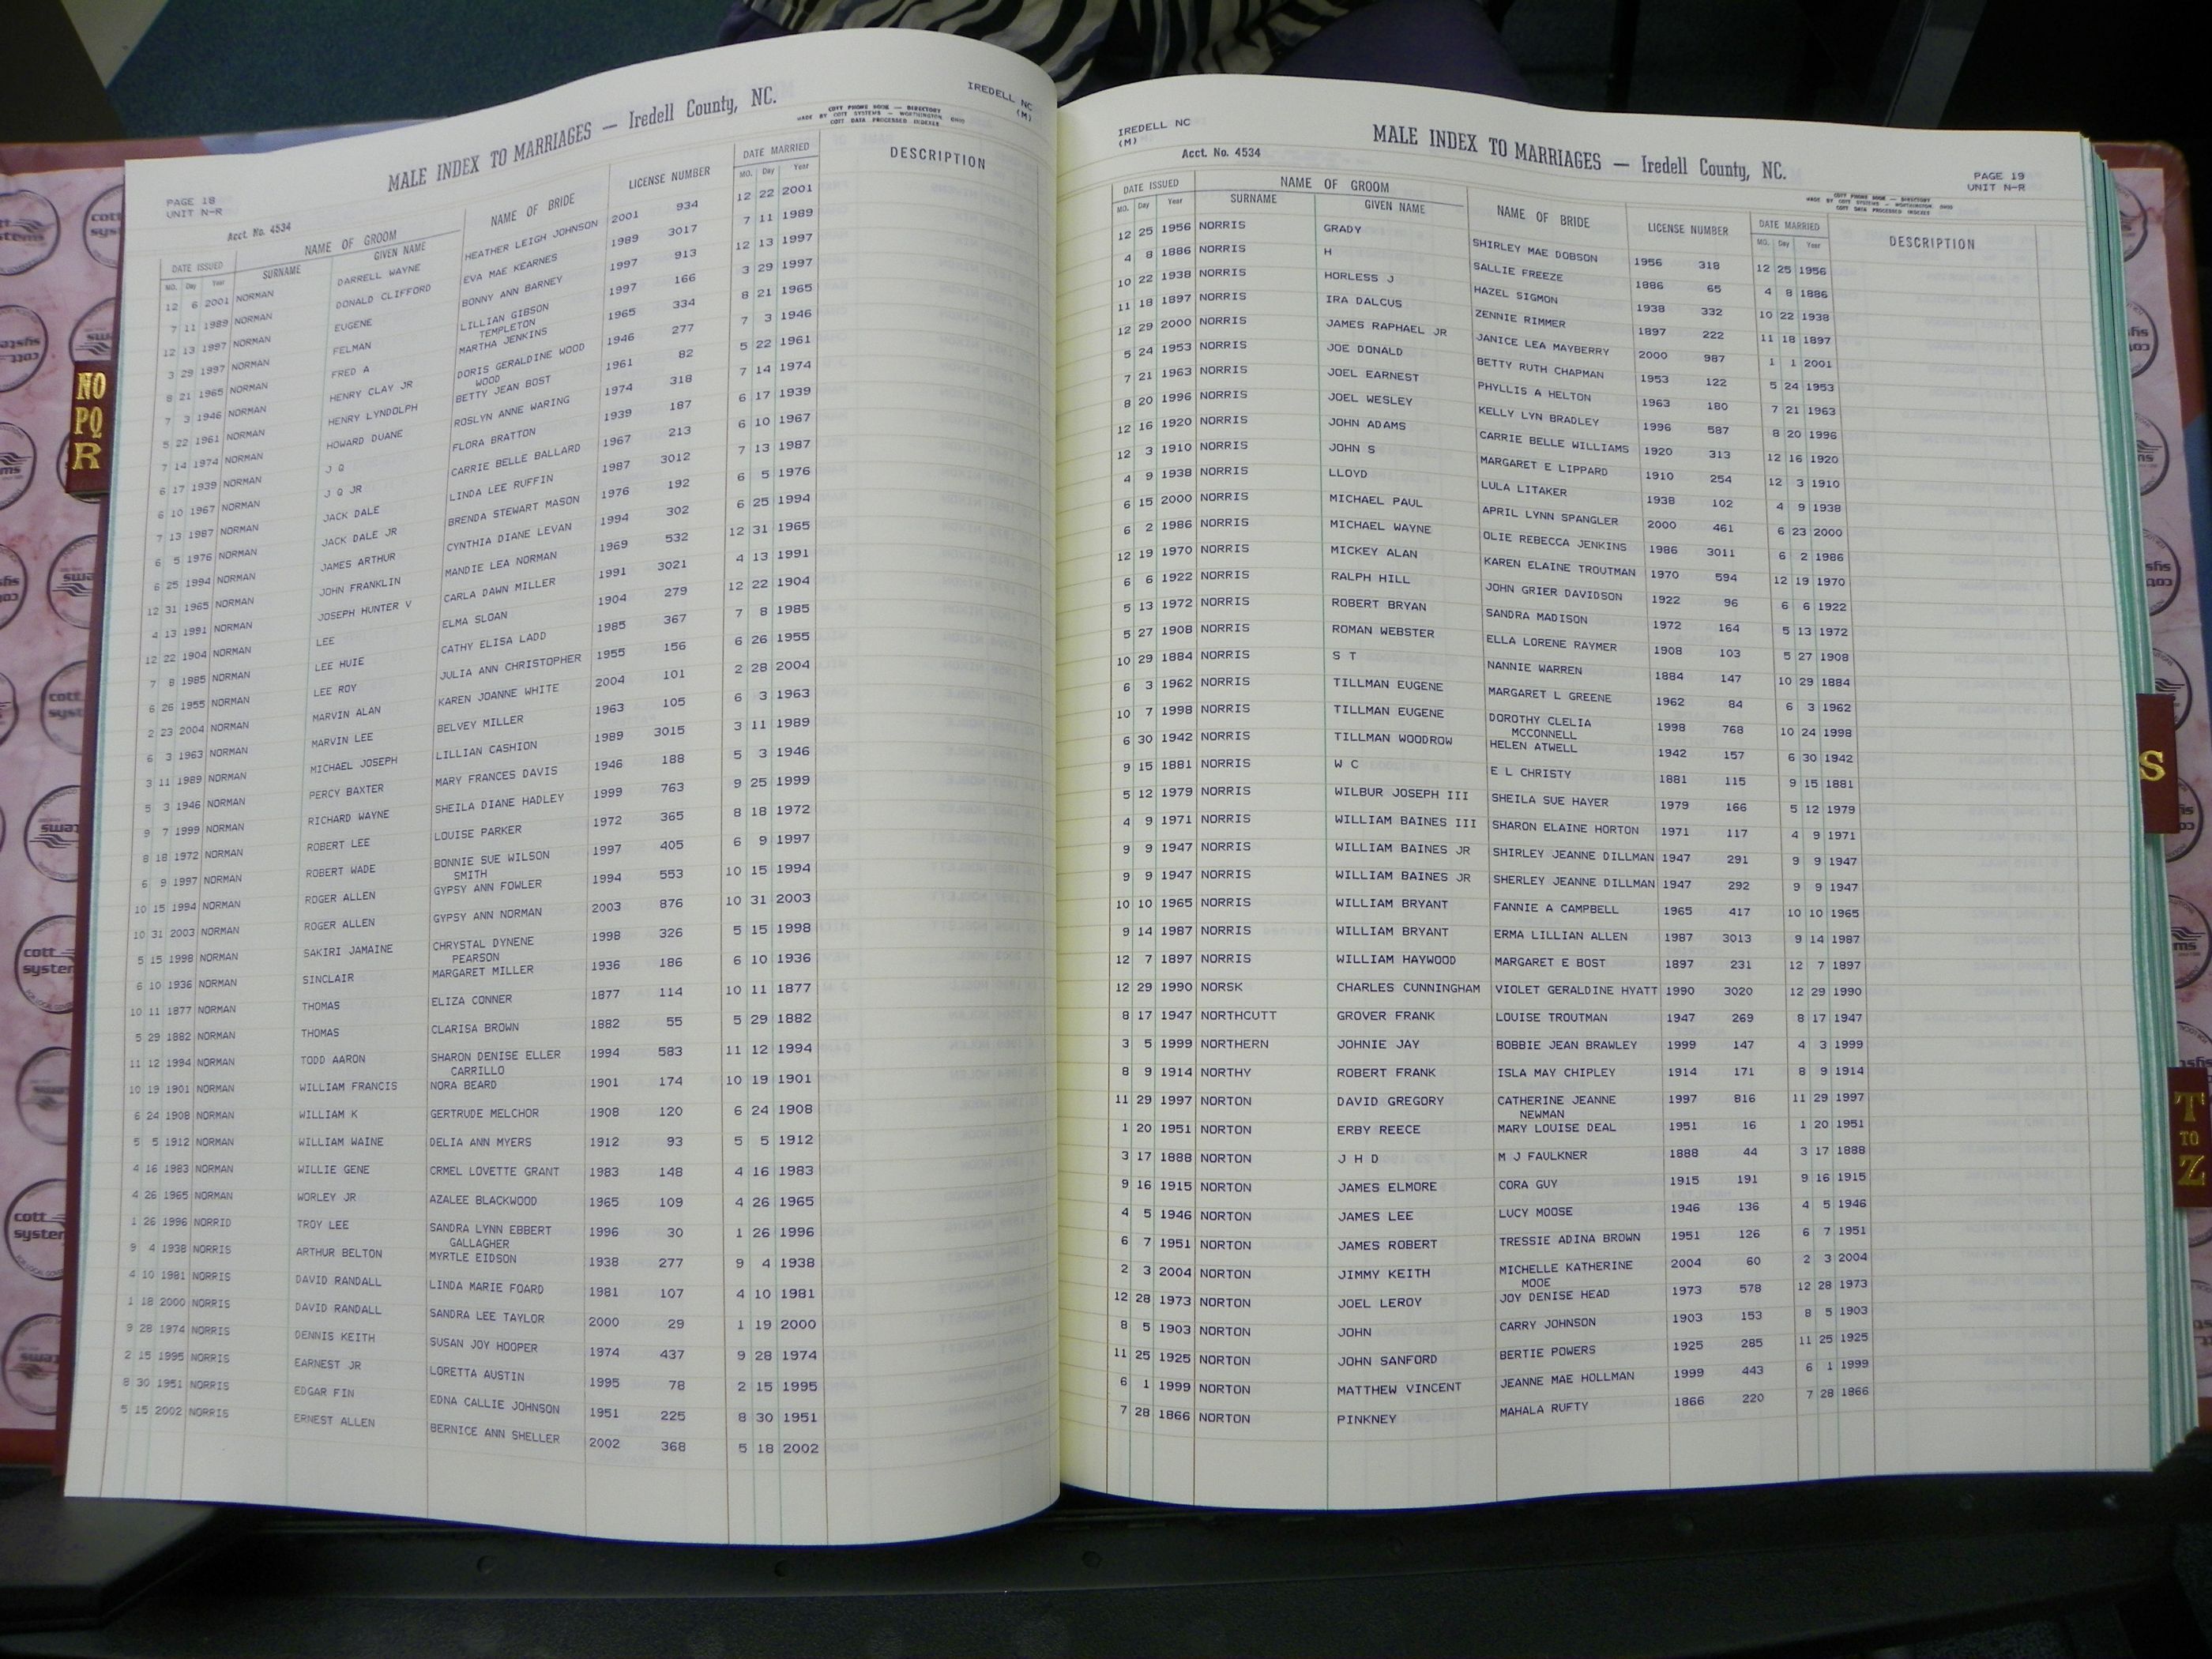 PAGE 18
UNIT N-R
Acct. No. 4534
MALE INDEX TO MARRIAGES — Iredell County, NC.
COTT PHONE BOOK — DIRECTORY
MADE BY COTT SYSTEMS — WORTHINGTON, OHIO
COTT DATA PROCESSED INDEXES
IREDELL NC
(M)
DATE ISSUED NAME OF GROOM NAME OF BRIDE LICENSE NUMBER DATE MARRIED DESCRIPTION
MO. Day Year SURNAME GIVEN NAME MO. Day Year
12 6 2001 NORMAN DARRELL WAYNE HEATHER LEIGH JOHNSON 2001 934 12 22 2001
7 11 1989 NORMAN DONALD CLIFFORD EVA MAE KEARNES 1989 3017 7 11 1989
12 13 1997 NORMAN EUGENE BONNY ANN BARNEY 1997 913 12 13 1997
3 29 1997 NORMAN FELMAN LILLIAN GIBSON 1997 166 3 29 1997
TEMPLETON
8 21 1965 NORMAN FRED A MARTHA JENKINS 1965 334 8 21 1965
7 3 1946 NORMAN HENRY CLAY JR DORIS GERALDINE WOOD 1946 277 7 3 1946
WOOD
5 22 1961 NORMAN HENRY LYNDOLPH BETTY JEAN BOST 1961 82 5 22 1961
7 14 1974 NORMAN HOWARD DUANE ROSLYN ANNE WARING 1974 318 7 14 1974
6 17 1939 NORMAN J Q FLORA BRATTON 1939 187 6 17 1939
6 10 1967 NORMAN J Q JR CARRIE BELLE BALLARD 1967 213 6 10 1967
7 13 1987 NORMAN JACK DALE LINDA LEE RUFFIN 1987 3012 7 13 1987
6 5 1976 NORMAN JACK DALE JR BRENDA STEWART MASON 1976 192 6 5 1976
6 25 1994 NORMAN JAMES ARTHUR CYNTHIA DIANE LEVAN 1994 302 6 25 1994
12 31 1965 NORMAN JOHN FRANKLIN MANDIE LEA NORMAN 1969 532 12 31 1965
4 13 1991 NORMAN JOSEPH HUNTER V CARLA DAWN MILLER 1991 3021 4 13 1991
12 22 1904 NORMAN LEE ELMA SLOAN 1904 279 12 22 1904
7 8 1985 NORMAN LEE HUIE CATHY ELISA LADD 1985 367 7 8 1985
6 26 1955 NORMAN LEE ROY JULIA ANN CHRISTOPHER 1955 156 6 26 1955
2 23 2004 NORMAN MARVIN ALAN KAREN JOANNE WHITE 2004 101 2 28 2004
6 3 1963 NORMAN MARVIN LEE BELVEY MILLER 1963 105 6 3 1963
3 11 1989 NORMAN MICHAEL JOSEPH LILLIAN CASHION 1989 3015 3 11 1989
5 3 1946 NORMAN PERCY BAXTER MARY FRANCES DAVIS 1946 188 5 3 1946
9 7 1999 NORMAN RICHARD WAYNE SHEILA DIANE HADLEY 1999 763 9 25 1999
8 18 1972 NORMAN ROBERT LEE LOUISE PARKER 1972 365 8 18 1972
6 9 1997 NORMAN ROBERT WADE BONNIE SUE WILSON 1997 405 6 9 1997
SMITH
10 15 1994 NORMAN ROGER ALLEN GYPSY ANN FOWLER 1994 553 10 15 1994
10 31 2003 NORMAN ROGER ALLEN GYPSY ANN NORMAN 2003 876 10 31 2003
5 15 1998 NORMAN SAKIRI JAMAINE CHRYSTAL DYNENE 1998 326 5 15 1998
PEARSON
6 10 1936 NORMAN SINCLAIR MARGARET MILLER 1936 186 6 10 1936
10 11 1877 NORMAN THOMAS ELIZA CONNER 1877 114 10 11 1877
5 29 1882 NORMAN THOMAS CLARISA BROWN 1882 55 5 29 1882
11 12 1994 NORMAN TODD AARON SHARON DENISE ELLER 1994 583 11 12 1994
CARRILLO
10 19 1901 NORMAN WILLIAM FRANCIS NORA BEARD 1901 174 10 19 1901
6 24 1908 NORMAN WILLIAM K GERTRUDE MELCHOR 1908 120 6 24 1908
5 5 1912 NORMAN WILLIAM WAINE DELIA ANN MYERS 1912 93 5 5 1912
4 16 1983 NORMAN WILLIE GENE CRMEL LOVETTE GRANT 1983 148 4 16 1983
4 26 1965 NORMAN WORLEY JR AZALEE BLACKWOOD 1965 109 4 26 1965
1 26 1996 NORRID TROY LEE SANDRA LYNN EBBERT 1996 30 1 26 1996
GALLAGHER
9 4 1938 NORRIS ARTHUR BELTON MYRTLE EIDSON 1938 277 9 4 1938
4 10 1981 NORRIS DAVID RANDALL LINDA MARIE FOARD 1981 107 4 10 1981
1 18 2000 NORRIS DAVID RANDALL SANDRA LEE TAYLOR 2000 29 1 19 2000
9 28 1974 NORRIS DENNIS KEITH SUSAN JOY HOOPER 1974 437 9 28 1974
2 15 1995 NORRIS EARNEST JR LORETTA AUSTIN 1995 78 2 15 1995
8 30 1951 NORRIS EDGAR FIN EDNA CALLIE JOHNSON 1951 225 8 30 1951
5 15 2002 NORRIS ERNEST ALLEN BERNICE ANN SHELLER 2002 368 5 18 2002
IREDELL NC
(M)
Acct. No. 4534
MALE INDEX TO MARRIAGES — Iredell County, NC.
PAGE 19
UNIT N-R
MADE BY COTT SYSTEMS — WORTHINGTON, OHIO
COTT DATA PROCESSED INDEXES
DATE ISSUED NAME OF GROOM NAME OF BRIDE LICENSE NUMBER DATE MARRIED DESCRIPTION
MO. Day Year SURNAME GIVEN NAME MO. Day Year
12 25 1956 NORRIS GRADY SHIRLEY MAE DOBSON 1956 318 12 25 1956
4 8 1886 NORRIS H SALLIE FREEZE 1886 65 4 8 1886
10 22 1938 NORRIS HORLESS J HAZEL SIGMON 1938 332 10 22 1938
11 18 1897 NORRIS IRA DALCUS ZENNIE RIMMER 1897 222 11 18 1897
12 29 2000 NORRIS JAMES RAPHAEL JR JANICE LEA MAYBERRY 2000 987 1 1 2001
5 24 1953 NORRIS JOE DONALD BETTY RUTH CHAPMAN 1953 122 5 24 1953
7 21 1963 NORRIS JOEL EARNEST PHYLLIS A HELTON 1963 180 7 21 1963
8 20 1996 NORRIS JOEL WESLEY KELLY LYN BRADLEY 1996 587 8 20 1996
12 16 1920 NORRIS JOHN ADAMS CARRIE BELLE WILLIAMS 1920 313 12 16 1920
12 3 1910 NORRIS JOHN S MARGARET E LIPPARD 1910 254 12 3 1910
4 9 1938 NORRIS LLOYD LULA LITAKER 1938 102 4 9 1938
6 15 2000 NORRIS MICHAEL PAUL APRIL LYNN SPANGLER 2000 461 6 23 2000
6 2 1986 NORRIS MICHAEL WAYNE OLIE REBECCA JENKINS 1986 3011 6 2 1986
12 19 1970 NORRIS MICKEY ALAN KAREN ELAINE TROUTMAN 1970 594 12 19 1970
6 6 1922 NORRIS RALPH HILL JOHN GRIER DAVIDSON 1922 96 6 6 1922
5 13 1972 NORRIS ROBERT BRYAN SANDRA MADISON 1972 164 5 13 1972
5 27 1908 NORRIS ROMAN WEBSTER ELLA LORENE RAYMER 1908 103 5 27 1908
10 29 1884 NORRIS S T NANNIE WARREN 1884 147 10 29 1884
6 3 1962 NORRIS TILLMAN EUGENE MARGARET L GREENE 1962 84 6 3 1962
10 7 1998 NORRIS TILLMAN EUGENE DOROTHY CLELIA 1998 768 10 24 1998
MCCONNELL
6 30 1942 NORRIS TILLMAN WOODROW HELEN ATWELL 1942 157 6 30 1942
9 15 1881 NORRIS W C E L CHRISTY 1881 115 9 15 1881
5 12 1979 NORRIS WILBUR JOSEPH III SHEILA SUE HAYER 1979 166 5 12 1979
4 9 1971 NORRIS WILLIAM BAINES III SHARON ELAINE HORTON 1971 117 4 9 1971
9 9 1947 NORRIS WILLIAM BAINES JR SHIRLEY JEANNE DILLMAN 1947 291 9 9 1947
9 9 1947 NORRIS WILLIAM BAINES JR SHERLEY JEANNE DILLMAN 1947 292 9 9 1947
10 10 1965 NORRIS WILLIAM BRYANT FANNIE A CAMPBELL 1965 417 10 10 1965
9 14 1987 NORRIS WILLIAM BRYANT ERMA LILLIAN ALLEN 1987 3013 9 14 1987
12 7 1897 NORRIS WILLIAM HAYWOOD MARGARET E BOST 1897 231 12 7 1897
12 29 1990 NORSK CHARLES CUNNINGHAM VIOLET GERALDINE HYATT 1990 3020 12 29 1990
8 17 1947 NORTHCUTT GROVER FRANK LOUISE TROUTMAN 1947 269 8 17 1947
3 5 1999 NORTHERN JOHNIE JAY BOBBIE JEAN BRAWLEY 1999 147 4 3 1999
8 9 1914 NORTHY ROBERT FRANK ISLA MAY CHIPLEY 1914 171 8 9 1914
11 29 1997 NORTON DAVID GREGORY CATHERINE JEANNE 1997 816 11 29 1997
NEWMAN
1 20 1951 NORTON ERBY REECE MARY LOUISE DEAL 1951 16 1 20 1951
3 17 1888 NORTON J H D M J FAULKNER 1888 44 3 17 1888
9 16 1915 NORTON JAMES ELMORE CORA GUY 1915 191 9 16 1915
4 5 1946 NORTON JAMES LEE LUCY MOOSE 1946 136 4 5 1946
6 7 1951 NORTON JAMES ROBERT TRESSIE ADINA BROWN 1951 126 6 7 1951
2 3 2004 NORTON JIMMY KEITH MICHELLE KATHERINE 2004 60 2 3 2004
MOOE
12 28 1973 NORTON JOEL LEROY JOY DENISE HEAD 1973 578 12 28 1973
8 5 1903 NORTON JOHN CARRY JOHNSON 1903 153 8 5 1903
11 25 1925 NORTON JOHN SANFORD BERTIE POWERS 1925 285 11 25 1925
6 1 1999 NORTON MATTHEW VINCENT JEANNE MAE HOLLMAN 1999 443 6 1 1999
7 28 1866 NORTON PINKNEY MAHALA RUFTY 1866 220 7 28 1866
NO
PQ
R
S
T
TO
Z
cott
systems